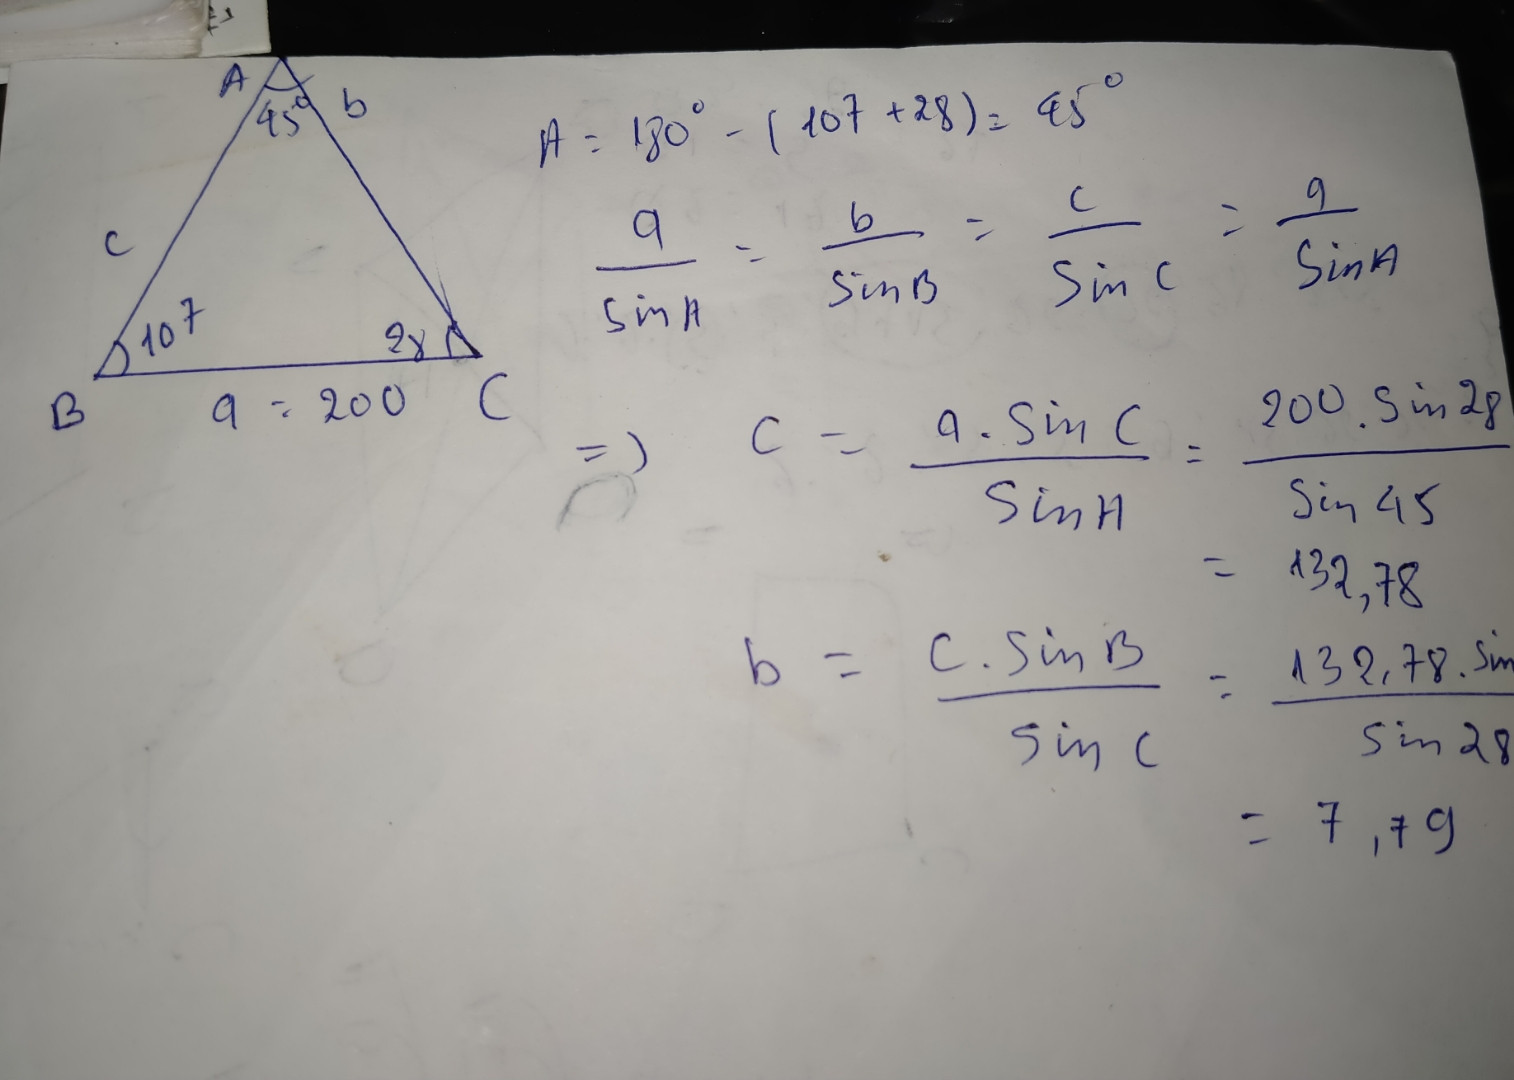 A
45°
b
c
107
28
B
a = 200
C
A = 180° - ( 107 + 28) = 45°
a / sin A = b / sin B = c / sin C = a / sin A
=> c = a . sin C / sin A = 200 . sin 28 / sin 45
= 132,78
b = c . sin B / sin C = 132,78 . sin / sin 28
= 7,79